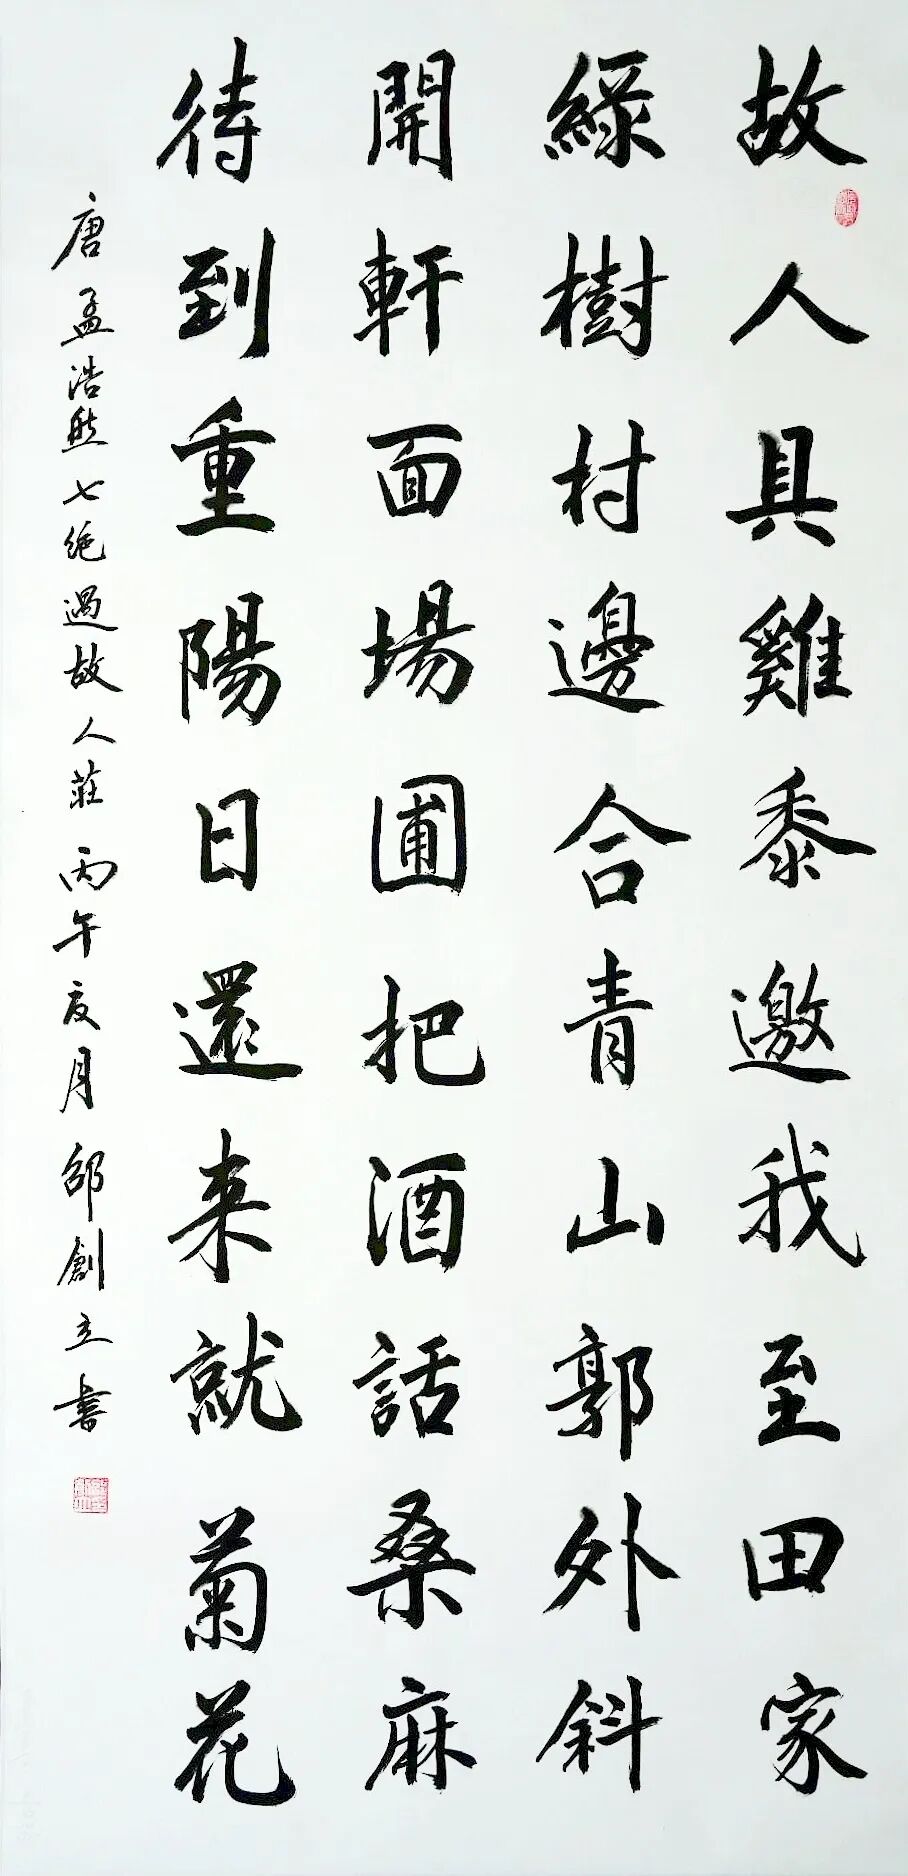 故人具雞黍邀我至田家
綠樹村邊合青山郭外斜
開軒面場圃把酒話桑麻
待到重陽日還来就菊花
唐孟浩然七絕過故人莊丙午夏月邵創立書